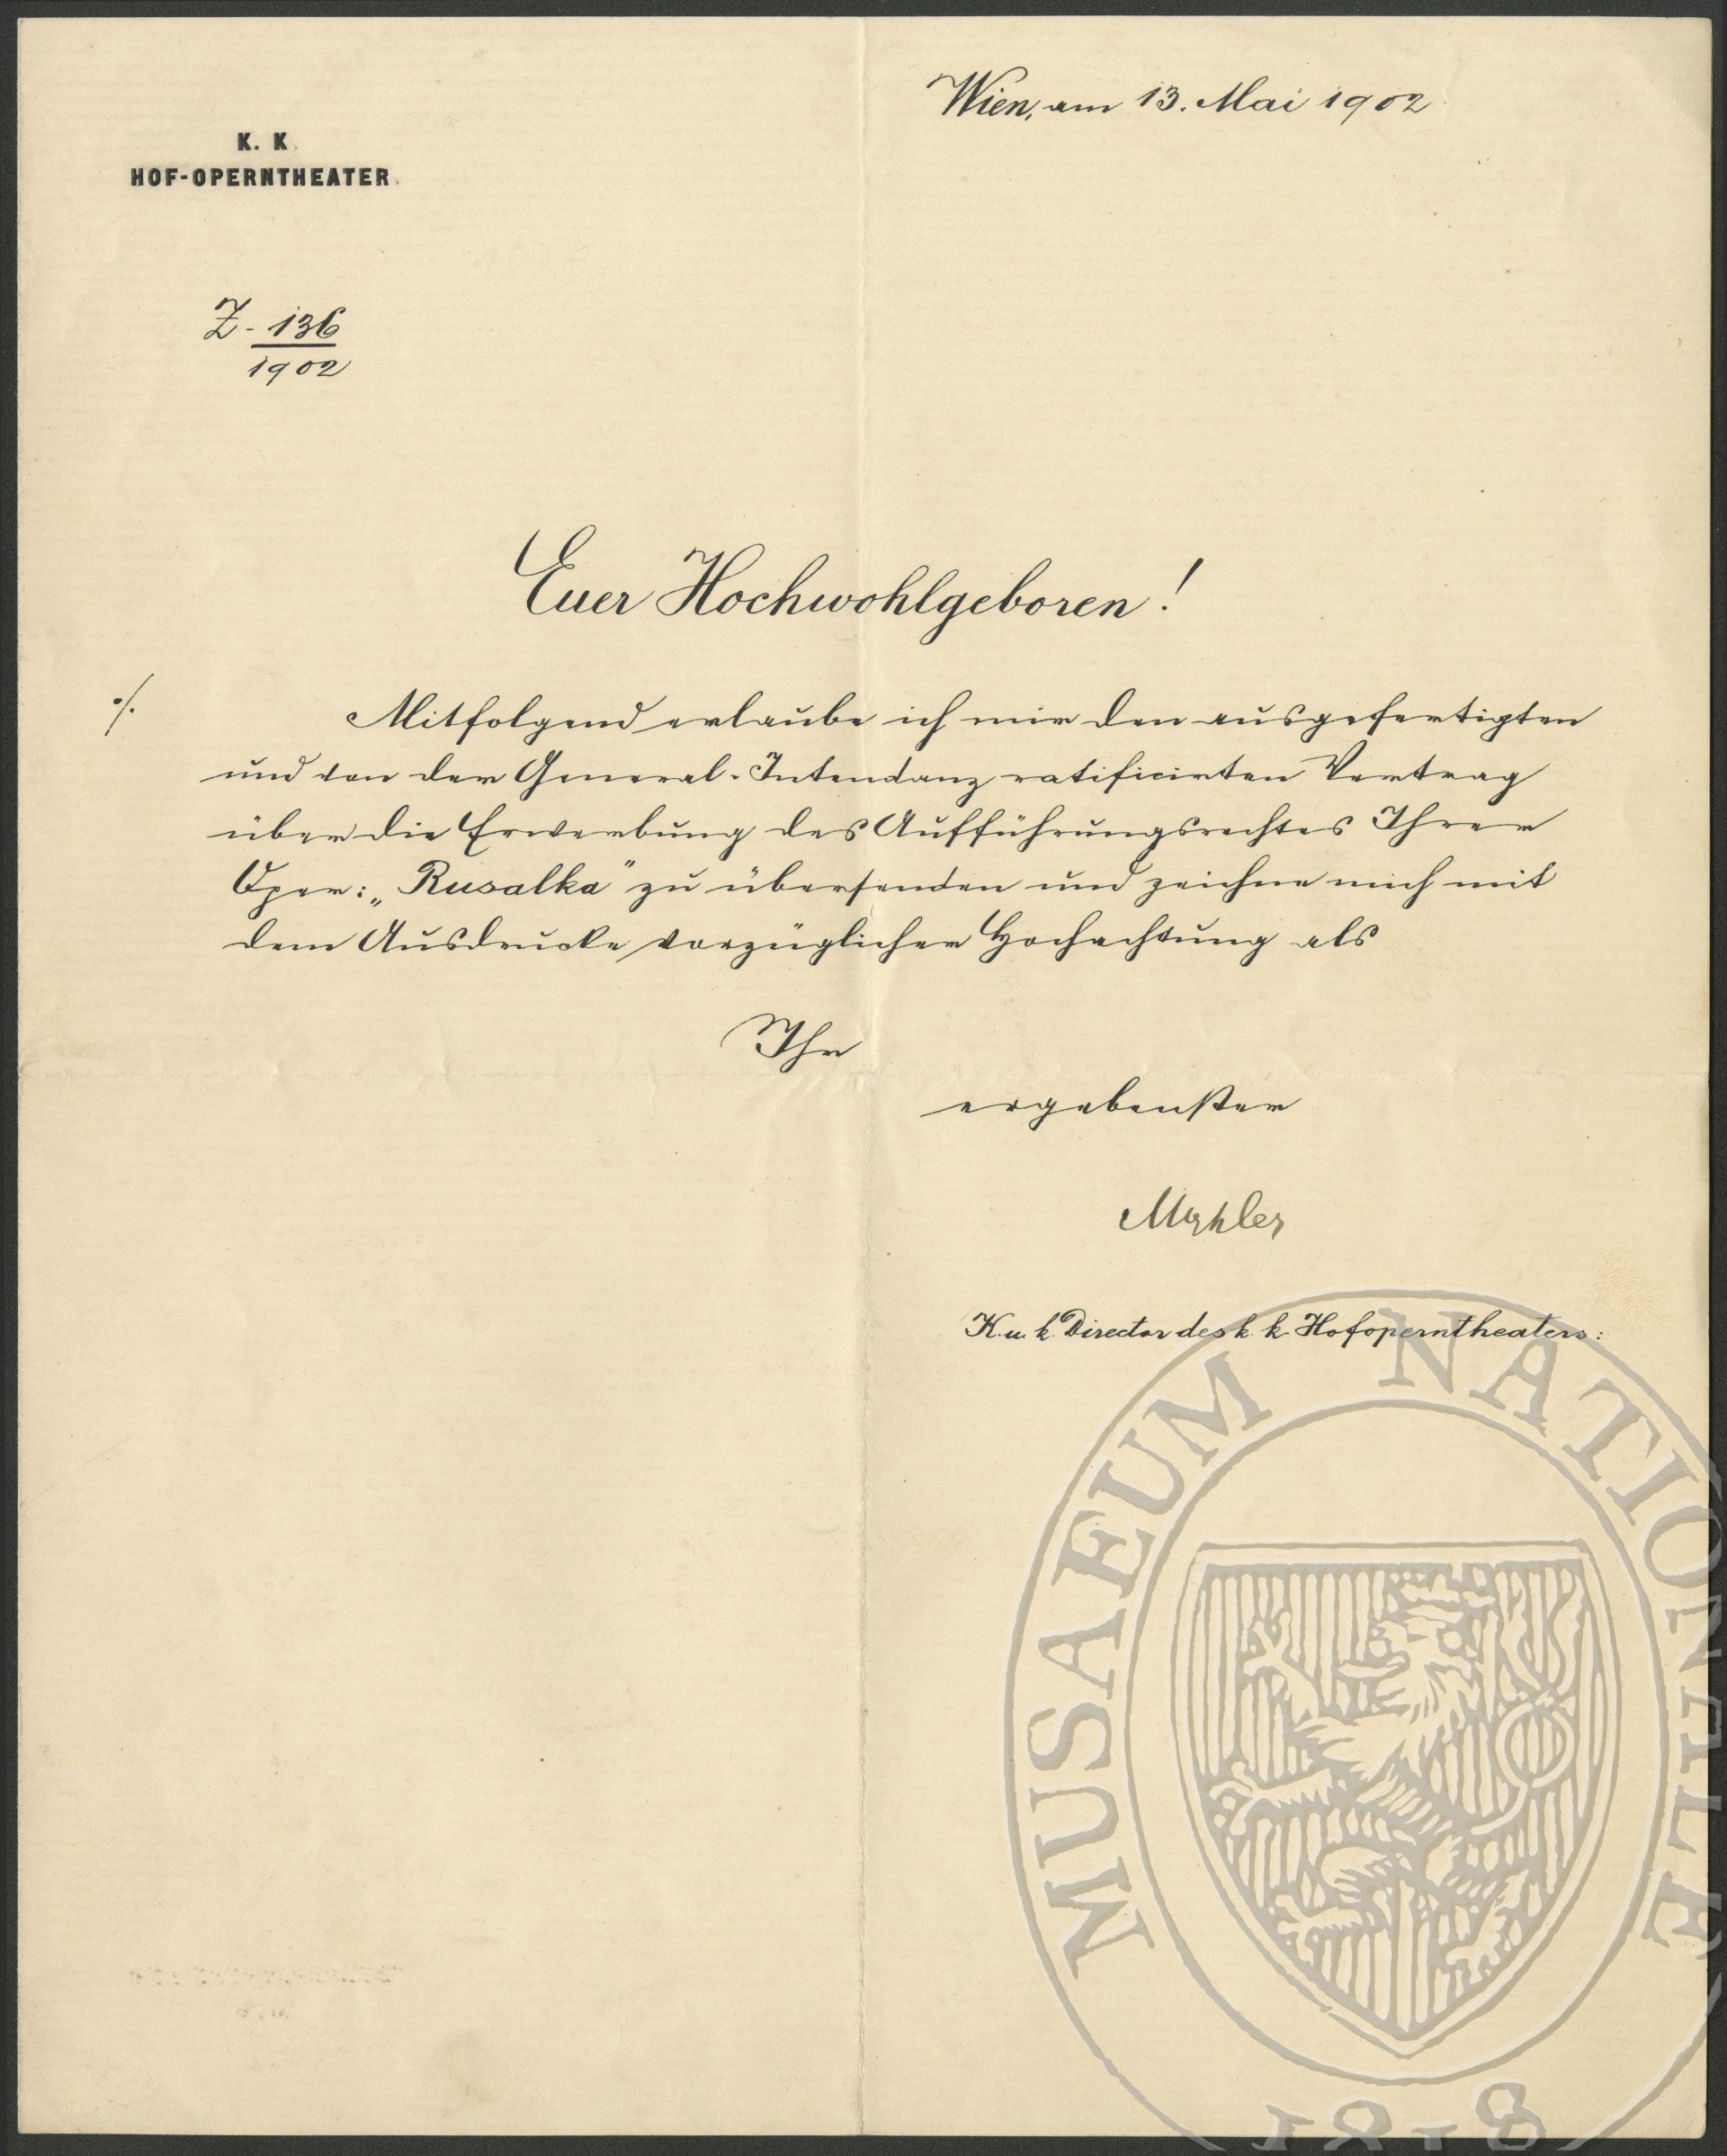 Wien, am 13. Mai 1902
K. K.
HOF-OPERNTHEATER.
Z. 136
1902
Euer Hochwohlgeboren!
./.
Mitfolgend erlaube ich mir den ausgefertigten
und von der General-Intendanz ratificirten Vertrag
über die Erwerbung des Aufführungsrechtes Ihrer
Oper: „Rusalka" zu übersenden und zeichne mich mit
dem Ausdrucke vorzüglicher Hochachtung als
Ihr
ergebenster
Mahler
K. u. k. Director des k. k. Hofoperntheaters:
MUSAEUM NATIONALE
1818